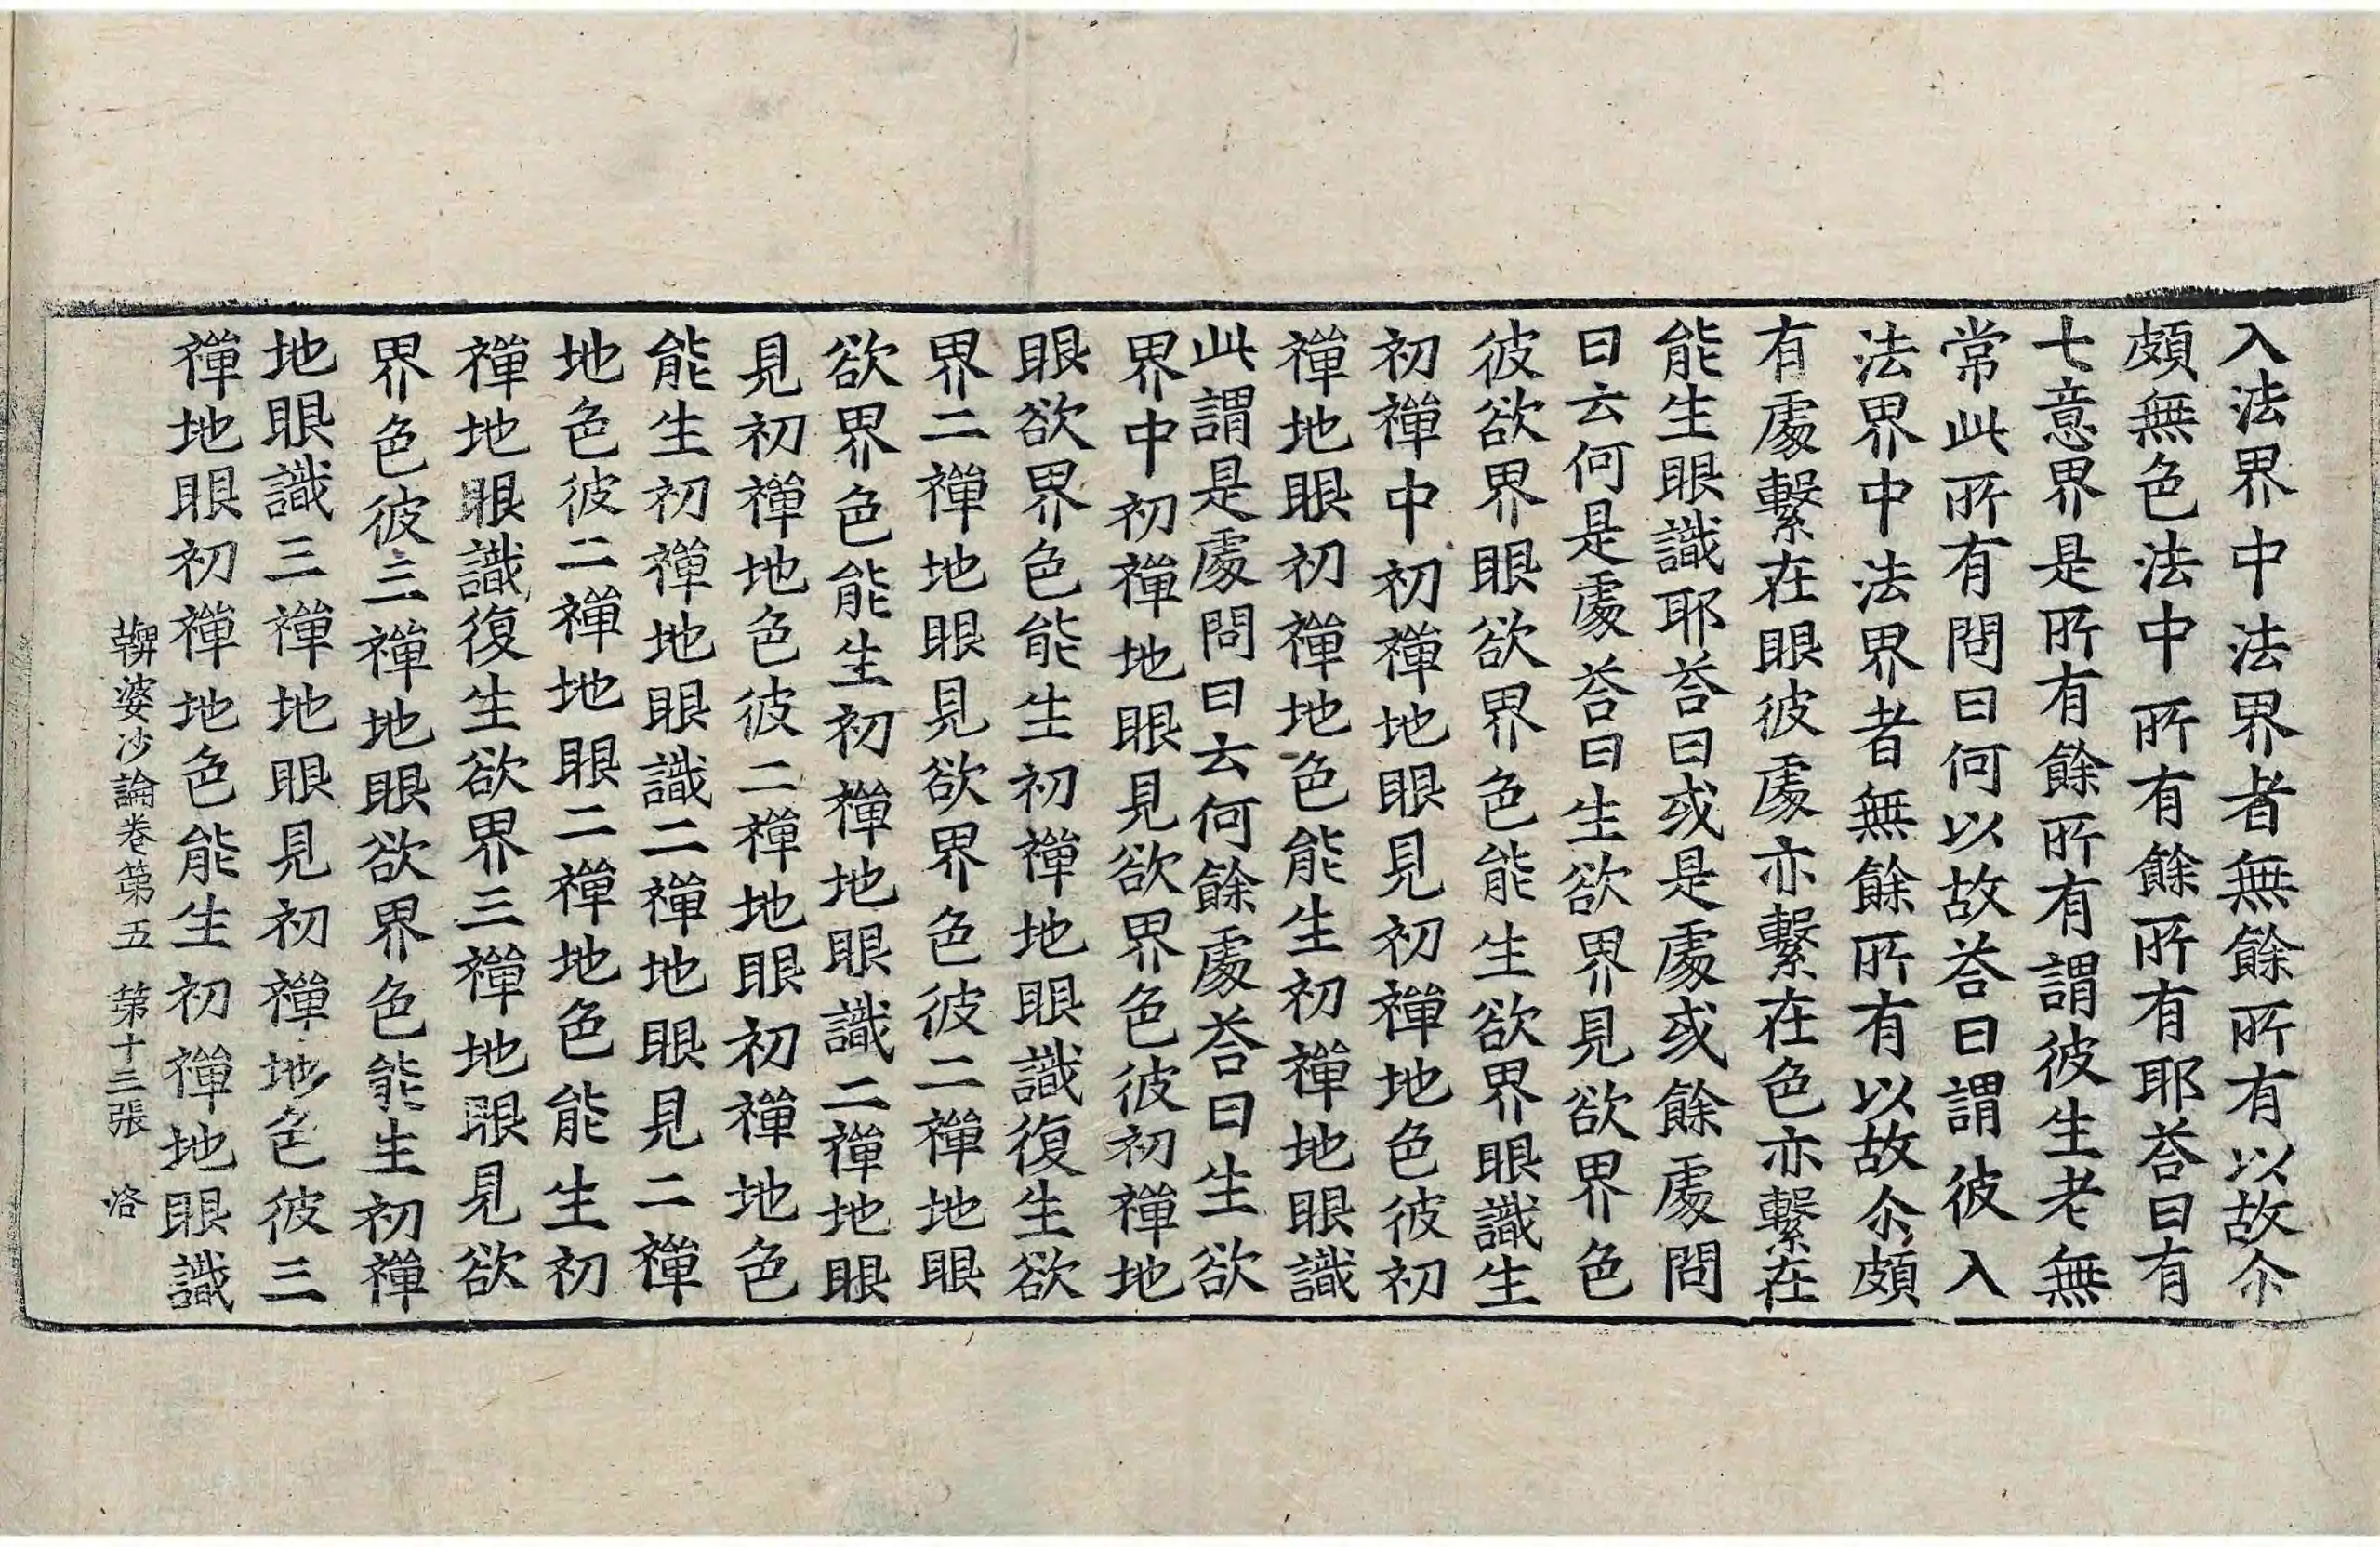 入法界中法界者無餘所有以故尒
頗無色法中所有餘所有耶荅曰有
七意界是所有餘所有謂彼生老無
常此所有問曰何以故荅曰謂彼入
法界中法界者無餘所有以故尒頗
有處繫在眼彼處亦繫在色亦繫在
能生眼識耶荅曰或是處或餘處問
曰云何是處荅曰生欲界見欲界色
彼欲界眼欲界色能生欲界眼識生
初禪中初禪地眼見初禪地色彼初
禪地眼初禪地色能生初禪地眼識
此謂是處問曰云何餘處荅曰生欲
界中初禪地眼見欲界色彼初禪地
眼欲界色能生初禪地眼識復生欲
界二禪地眼見欲界色彼二禪地眼
欲界色能生初禪地眼識二禪地眼
見初禪地色彼二禪地眼初禪地色
能生初禪地眼識二禪地眼見二禪
地色彼二禪地眼二禪地色能生初
禪地眼識復生欲界三禪地眼見欲
界色彼三禪地眼欲界色能生初禪
地眼識三禪地眼見初禪地色彼三
禪地眼初禪地色能生初禪地眼識
鞞婆沙論卷第五 第十三張 洛